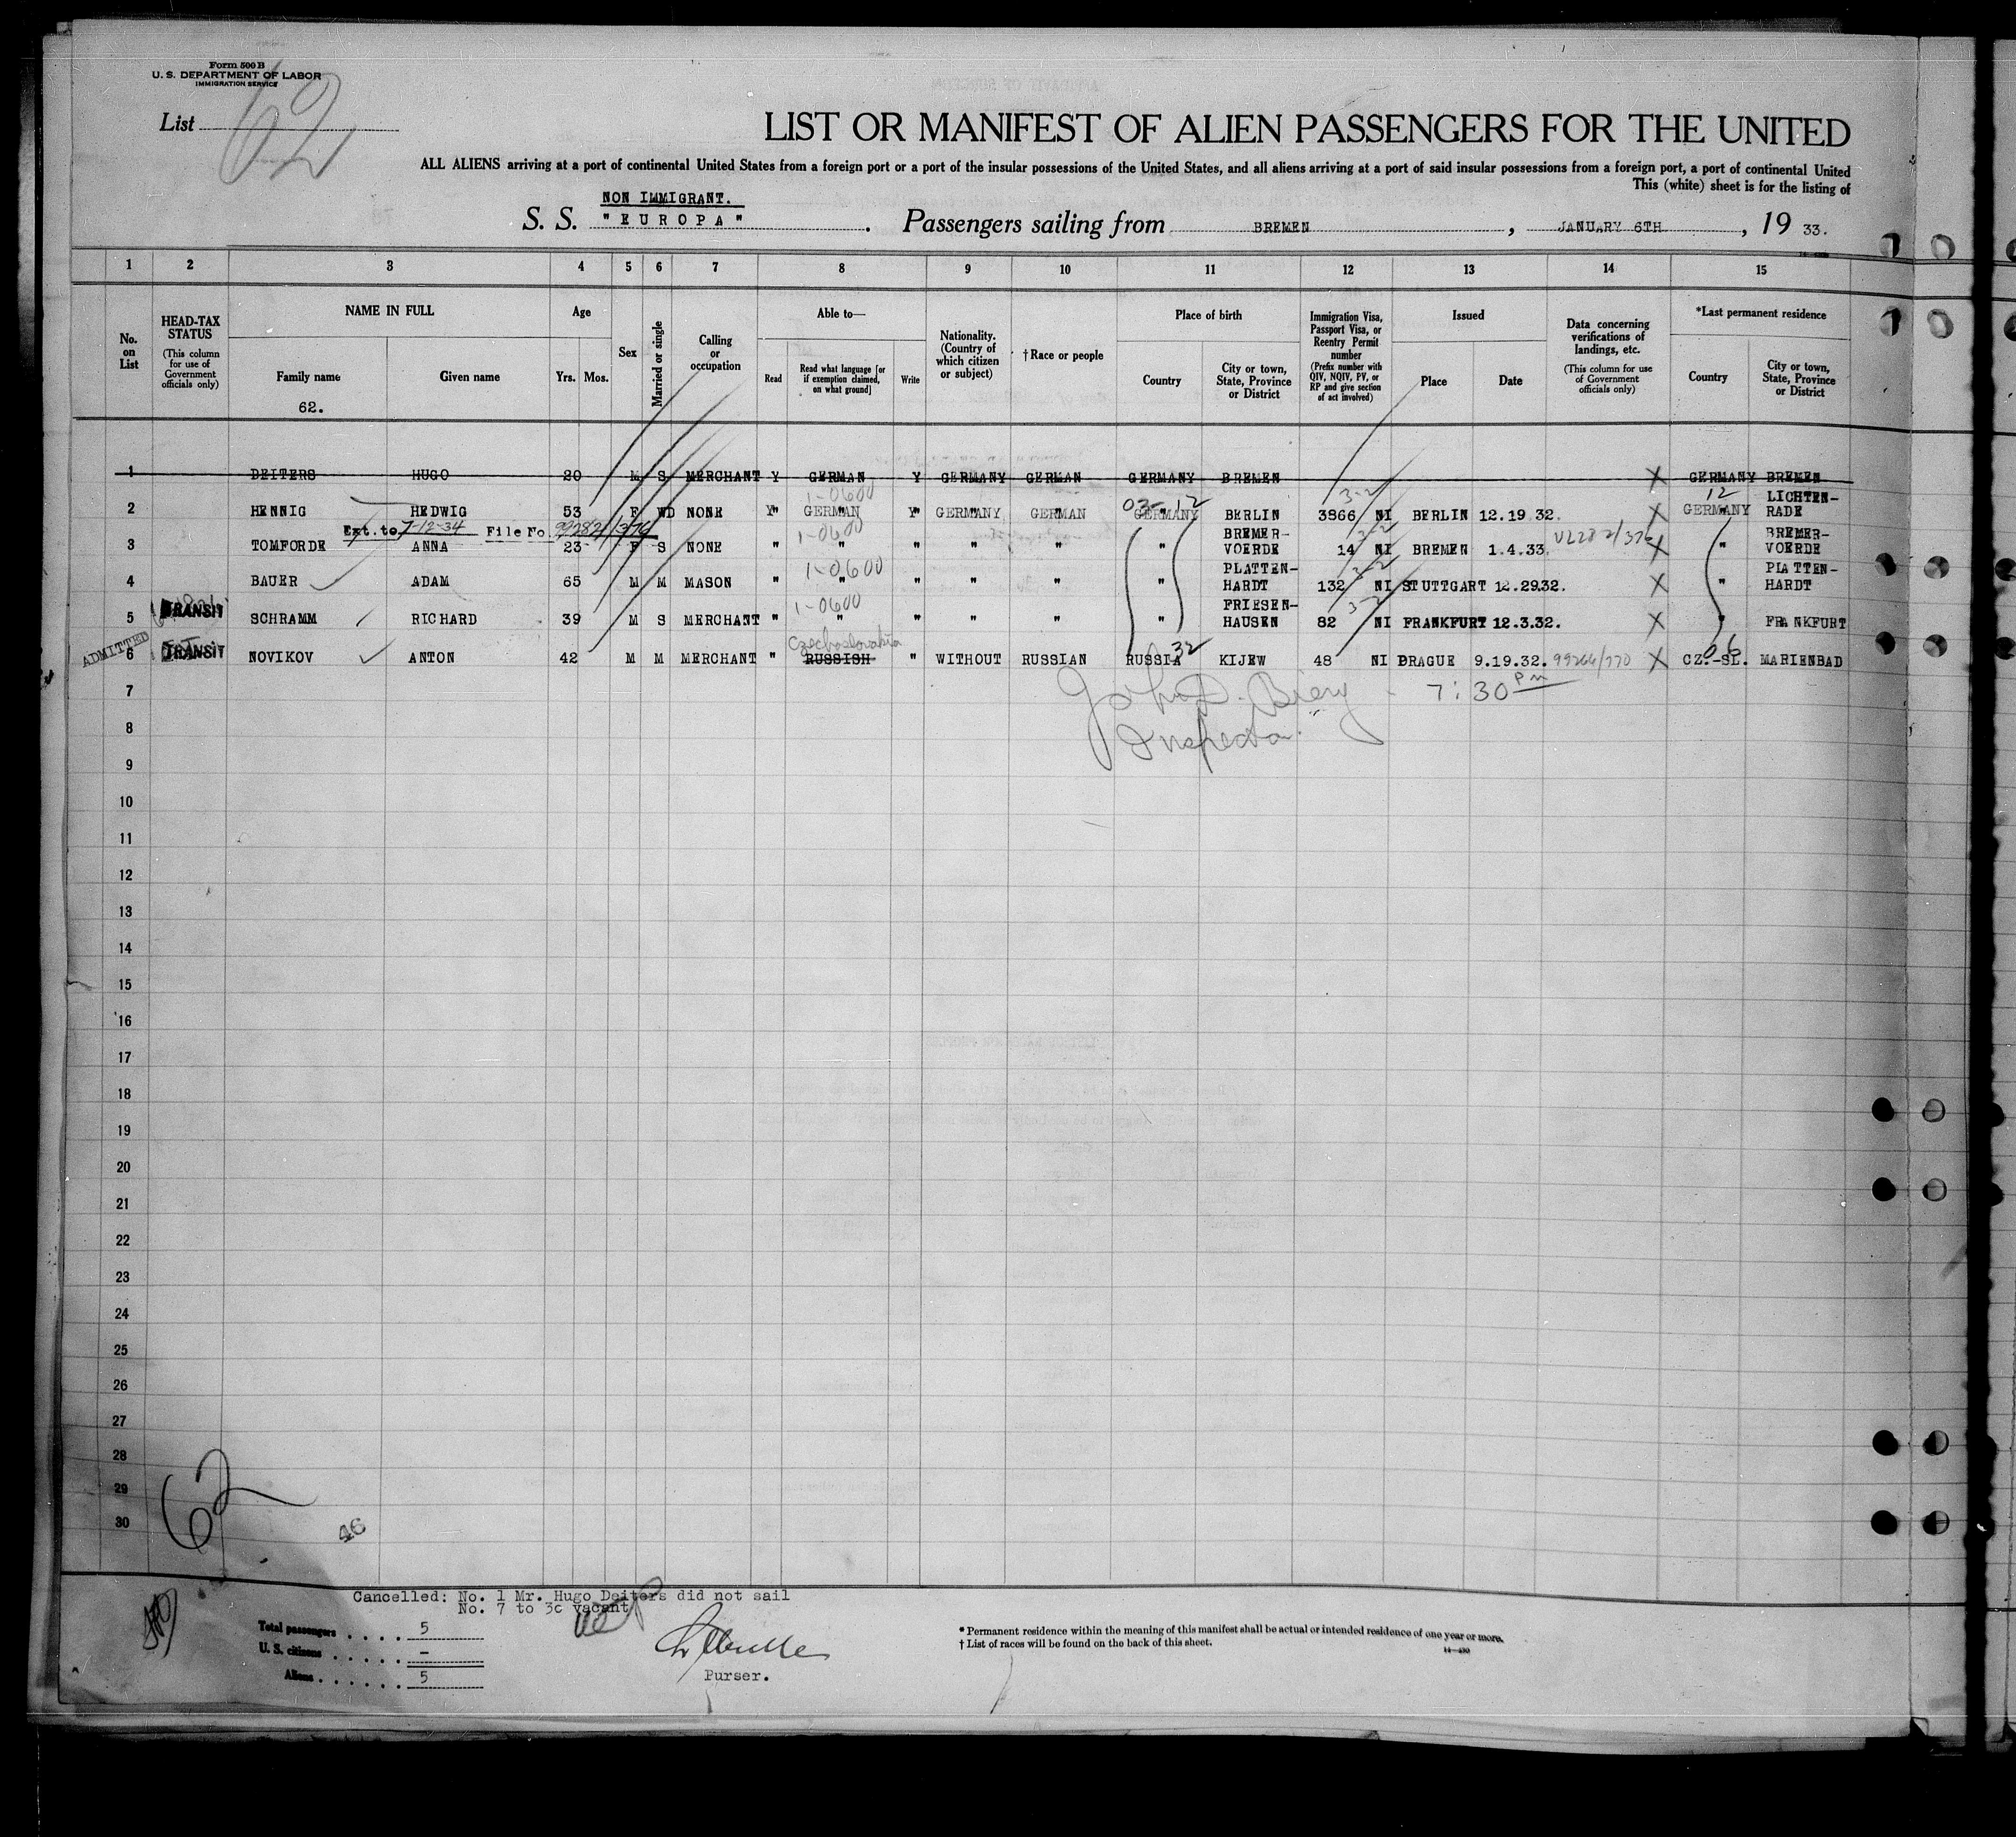 Form 500 B
U. S. DEPARTMENT OF LABOR
IMMIGRATION SERVICE
List 62
LIST OR MANIFEST OF ALIEN PASSENGERS FOR THE UNITED
ALL ALIENS arriving at a port of continental United States from a foreign port or a port of the insular possessions of the United States, and all aliens arriving at a port of said insular possessions from a foreign port, a port of continental United
This (white) sheet is for the listing of
NON IMMIGRANT.
S. S. "EUROPA". Passengers sailing from BREMEN, JANUARY 6TH, 19 33.
1 2 3 4 5 6 7 8 9 10 11 12 13 14 15
No. on List
HEAD-TAX STATUS (This column for use of Government officials only)
NAME IN FULL
Family name Given name
62.
Age
Yrs. Mos.
Sex
Married or single
Calling or occupation
Able to—
Read
Read what language [or if exemption claimed, on what ground]
Write
Nationality. (Country of which citizen or subject)
†Race or people
Place of birth
Country
City or town, State, Province or District
Immigration Visa, Passport Visa, or Reentry Permit number (Prefix number with QIV, NQIV, PV, or RP and give section of act involved)
Issued
Place Date
Data concerning verifications of landings, etc. (This column for use of Government officials only)
*Last permanent residence
Country
City or town, State, Province or District
1 DEITERS HUGO 20 M S MERCHANT Y GERMAN Y GERMANY GERMAN GERMANY BREMEN X GERMANY BREMEN
1-0600 03-12 3-2 12
2 HENNIG HEDWIG 53 F WD NONE Y" GERMAN Y" GERMANY GERMAN GERMANY BERLIN 3866 NI BERLIN 12.19.32. X GERMANY LICHTEN-RADE
Ext. to 7-12-34 File No. 99282/376 1-0600
3 TOMFORDE ANNA 23 F S NONE " " " " " " BREMER-VOERDE 14 NI BREMEN 1.4.33. X " BREMER-VOERDE
1-0600 3-2
4 BAUER ADAM 65 M M MASON " " " " " " PLATTEN-HARDT 132 NI STUTTGART 12.29.32. X " PLATTEN-HARDT
TRANSIT 1-0600 3-2
5 SCHRAMM RICHARD 39 M S MERCHANT " " " " " " FRIESEN-HAUSEN 82 NI FRANKFURT 12.3.32. X " FRANKFURT
ADMITTED TRANSIT Czechoslovakia 32 06
6 NOVIKOV ANTON 42 M M MERCHANT " RUSSISH " WITHOUT RUSSIAN RUSSIA KIJEW 48 NI PRAGUE 9.19.32. 99266/770 X CZ.-SL. MARIENBAD
7 John D. Biery - 7:30 PM
8 Inspector.
9
10
11
12
13
14
15
16
17
18
19
20
21
22
23
24
25
26
27
28
29
30
62
46
Cancelled: No. 1 Mr. Hugo Deiters did not sail
No. 7 to 3c vacant
Total passengers . . . . 5
U. S. citizens . . . . . –
Aliens . . . . . . 5
Purser.
* Permanent residence within the meaning of this manifest shall be actual or intended residence of one year or more.
† List of races will be found on the back of this sheet.